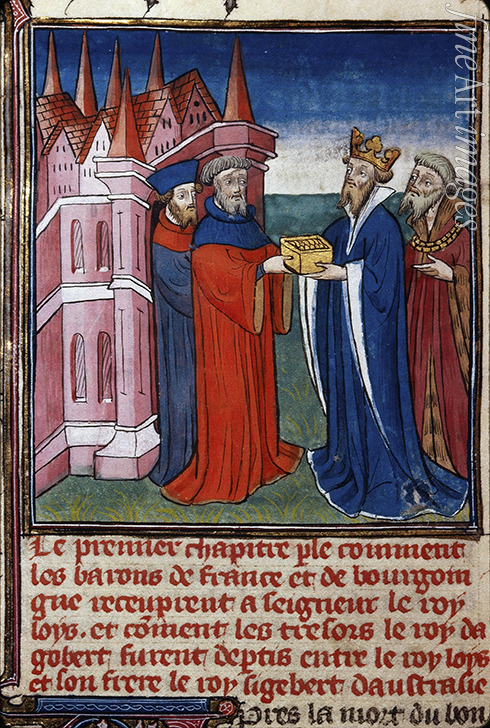 Le premier chapitre ple comment
les barons de france et de bourgoin
gne receuprent a seigneur le roy
loys. et cõment les tresors le roy da
gobert furent deptis entre le roy loys
et son frere le roy sigebert daustrasie
Apres la mort du bon
fineartimages